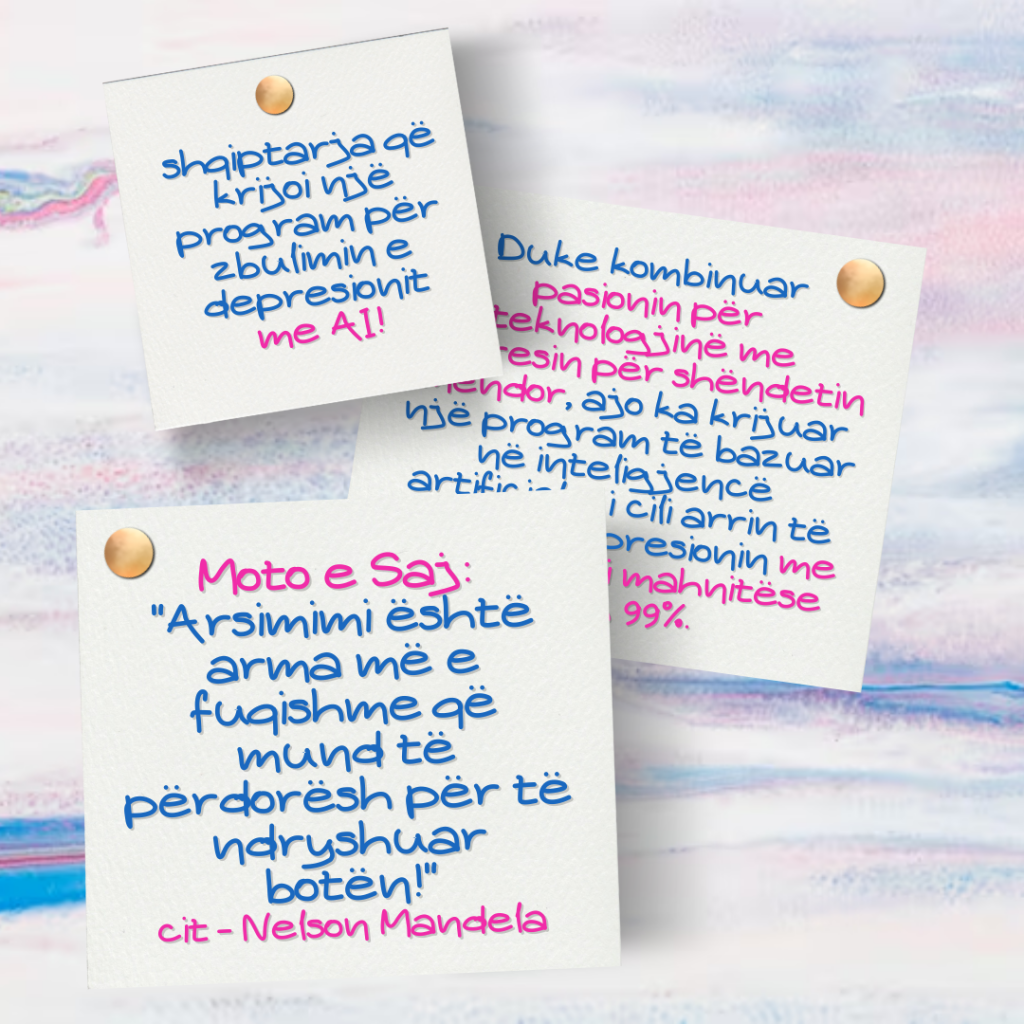 shqiptarja që
krijoi një
program për
zbulimin e
depresionit
me AI!
Duke kombinuar
pasionin për
teknologjinë me
për shëndetin
, ajo ka krijuar
një program të bazuar
në inteligjencë
i cili arrin të
me
mahnitëse
99%.
Moto e Saj:
"Arsimimi është
arma më e
fuqishme që
mund të
përdorësh për të
ndryshuar
botën!"
cit - Nelson Mandela